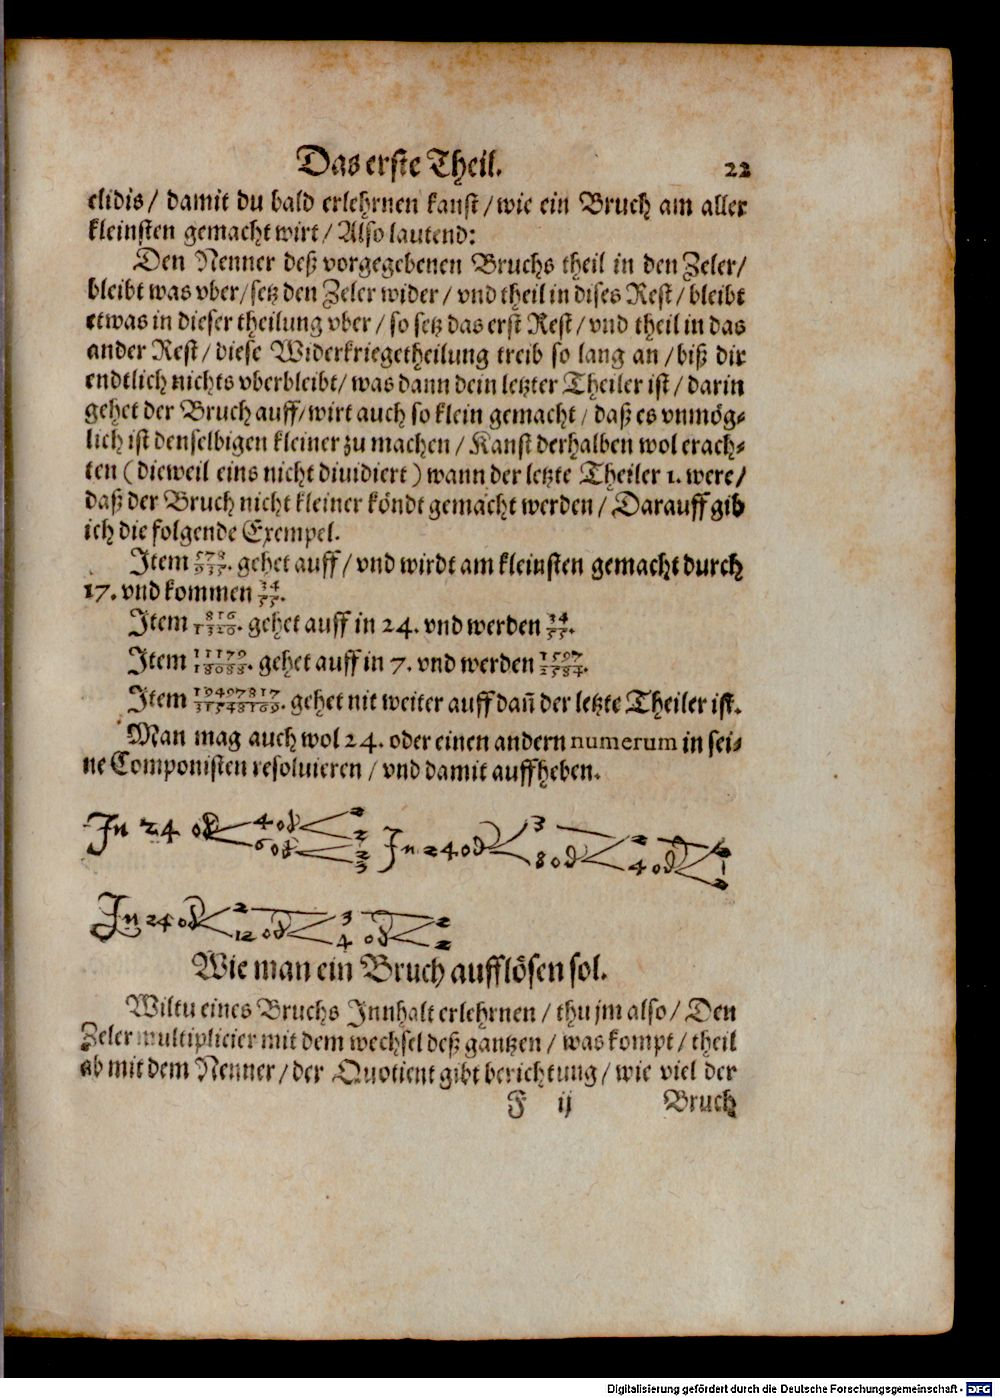 Das erste Theil. 22
elidis / damit du bald erlehrnen kanst / wie ein Bruch am aller
kleinsten gemacht wirt / Also lautend:
Den Nenner deß vorgegebenen Bruchs theil in den Zeler /
bleibt was vber / setz den Zeler wider / vnd theil in dises Rest / bleibt
etwas in dieser theilung vber / so setz das erst Rest / vnd theil in das
ander Rest / diese Widerkriegetheilung treib so lang an / biß dir
endtlich nichts vberbleibt / was dann dein letzter Theiler ist / darin
gehet der Bruch auff / wirt auch so klein gemacht / daß es vnmög⸗
lich ist denselbigen kleiner zu machen / Kanst derhalben wol erach⸗
ten ( dieweil eins nicht diuidiert ) wann der letzte Theiler 1. were /
daß der Bruch nicht kleiner köndt gemacht werden / Darauff gib
ich die folgende Exempel.
Item 578/935. gehet auff / vnd wirdt am kleinsten gemacht durch
17. vnd kommen 34/55.
Item 816/1320. gehet auff in 24. vnd werden 34/55.
Item 11179/18088. gehet auff in 7. vnd werden 1597/2584.
Item 19497817/31548169. gehet nit weiter auff dañ der letzte Theiler ist.
Man mag auch wol 24. oder einen andern numerum in sei⸗
ne Componisten resoluieren / vnd damit auffheben.
In 24 od 4 od 2 2 6 od 2 3 In 24 od 3 8 od 2 4 od 2 2
In 24 od 2 12 od 3 4 od 2 2
Wie man ein Bruch aufflösen sol.
Wiltu eines Bruchs Innhalt erlehrnen / thu jm also / Den
Zeler multiplicier mit dem wechsel deß gantzen / was kompt / theil
ab mit dem Nenner / der Quotient gibt berichtung / wie viel der
F ij Bruch
Digitalisierung gefördert durch die Deutsche Forschungsgemeinschaft - DFG